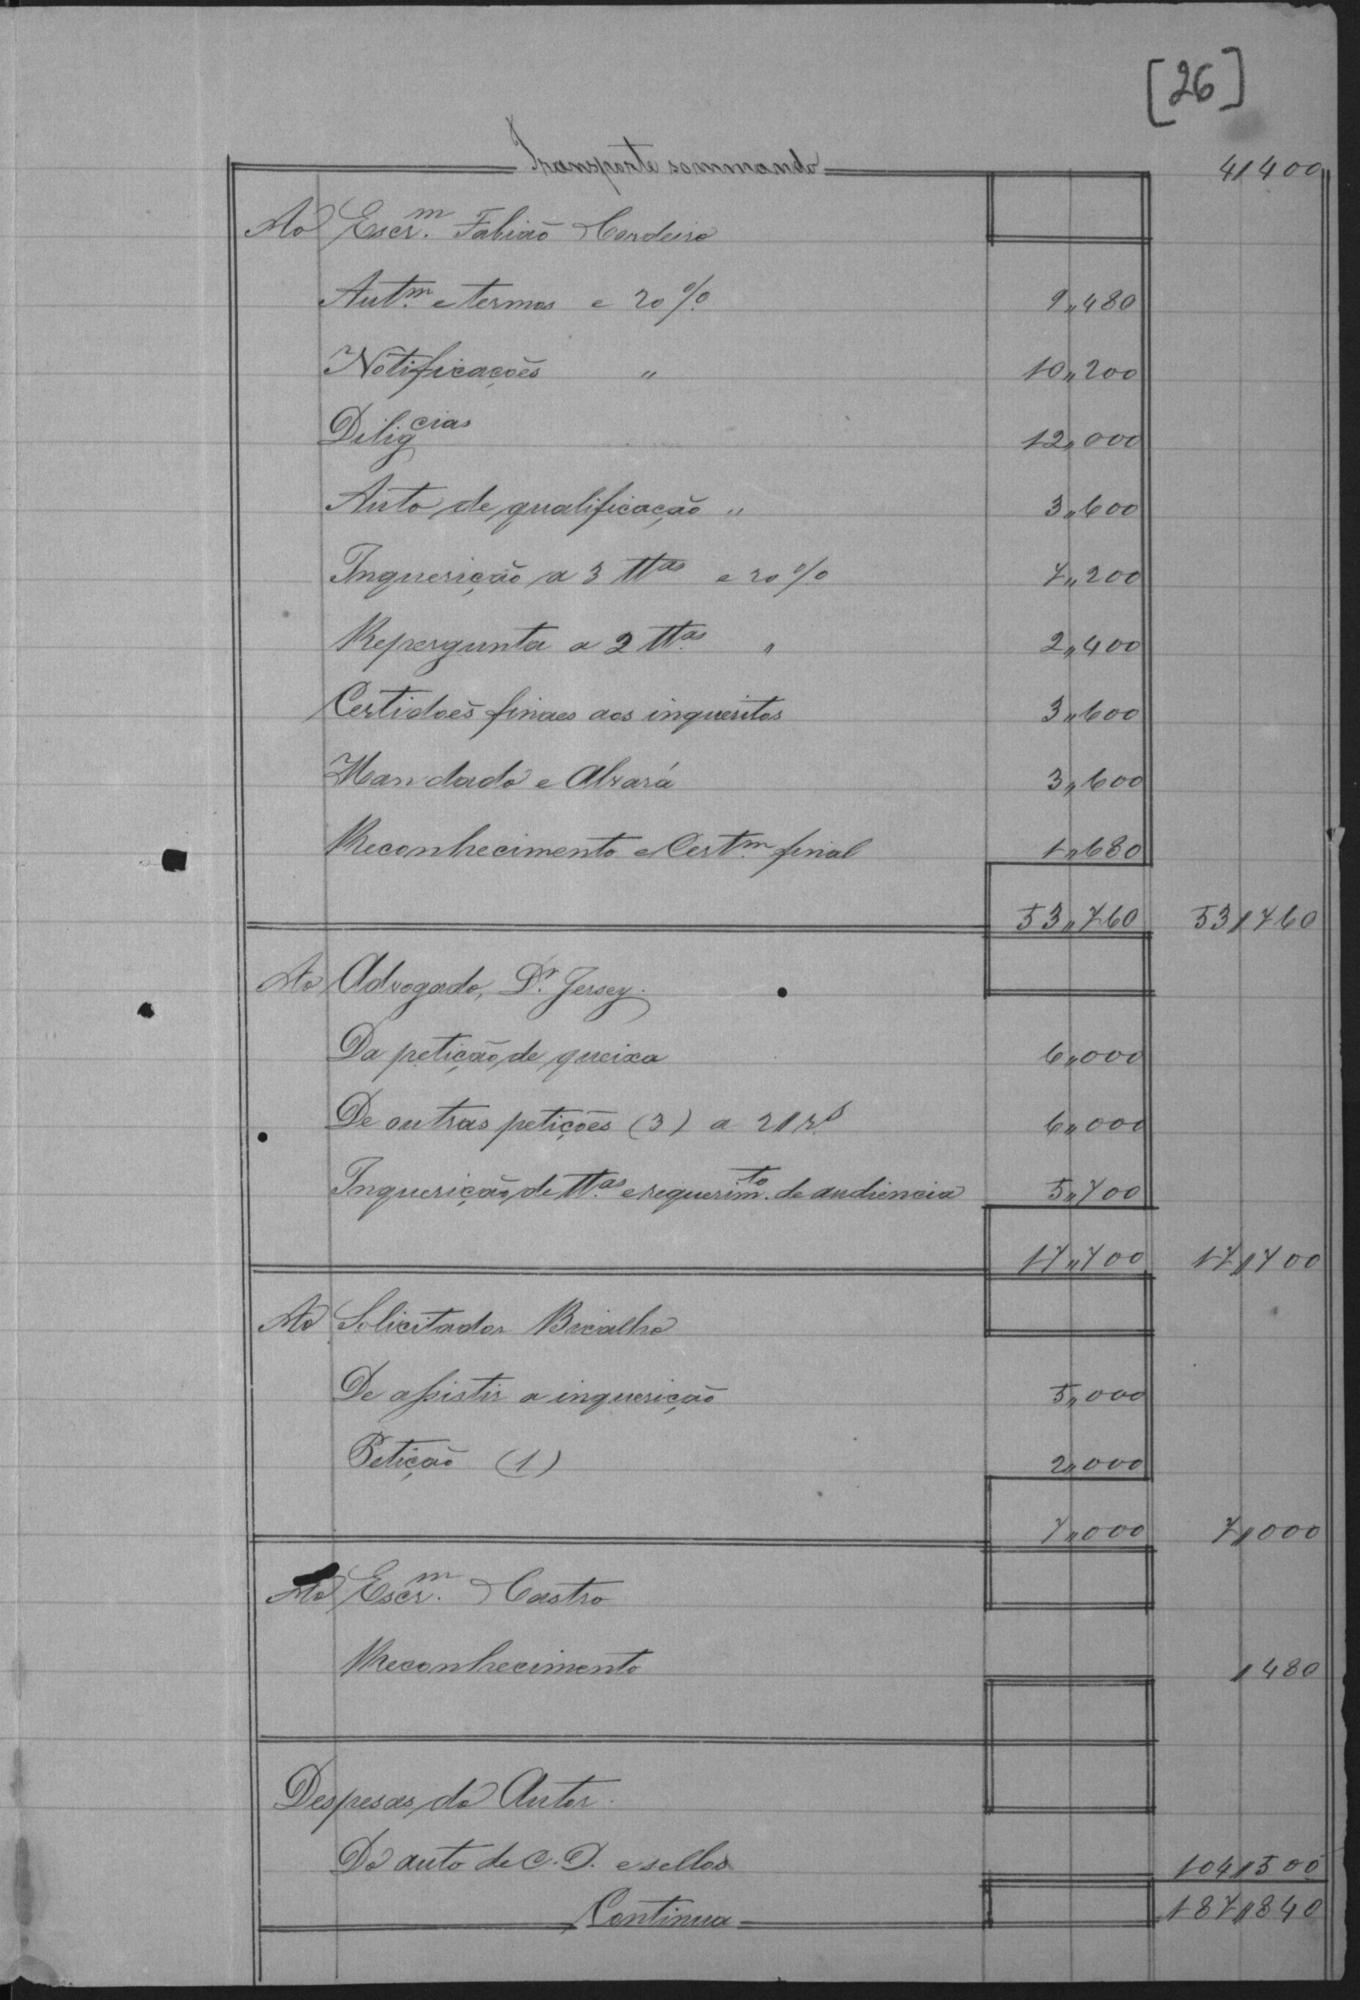 [26]
Transporte sommando 4$400
Ao Escr.m Fabião Cordeiro
Aut.m e termos e 20% 9,,480
Notificações ,, 10,,200
Diligcias 12,,000
Auto de qualificação ,, 3,,600
Inquerição a 3 ttas e 20% 7,,200
Repergunta a 2 tt.as ,, 2,,400
Certidões finaes aos inqueritos 3,,600
Mandado e Alvará 3,,600
Reconhecimento e Cert.m final 1,,680
53,,760 53$760
Ao Advogado, Dr. Jersey.
Da petição de queixa 6,,000
De outras petições (3) a 2$rs 6,,000
Inquerição de tt.as e requerim.to de audiencia 5,,700
17,,700 17$700
Ao Solicitador Bicalho
De assistir a inquerição 5,,000
Petição (1) 2,,000
7,,000 7$000
Ao Escr.m Castro
Reconhecimento $480
Despesas do Autor.
Do auto de C. D. e sellos 104$500
Continua 187$840